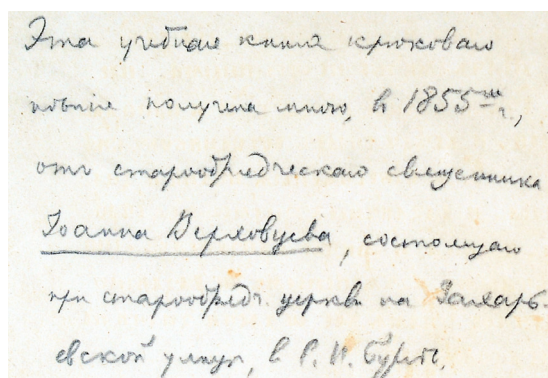 Эта учебная книга крюковаго
пѣнія получена мною, въ 1855-м г.,
отъ старообрядческаго священника
Іоанна Верховцева, состоящаго
при старообрядч. церкви на Захарь-
евской улицѣ, въ С. П. Бургѣ.